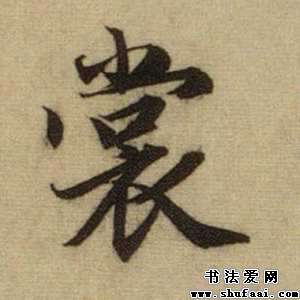 裳
书法爱网
www.shufaai.com